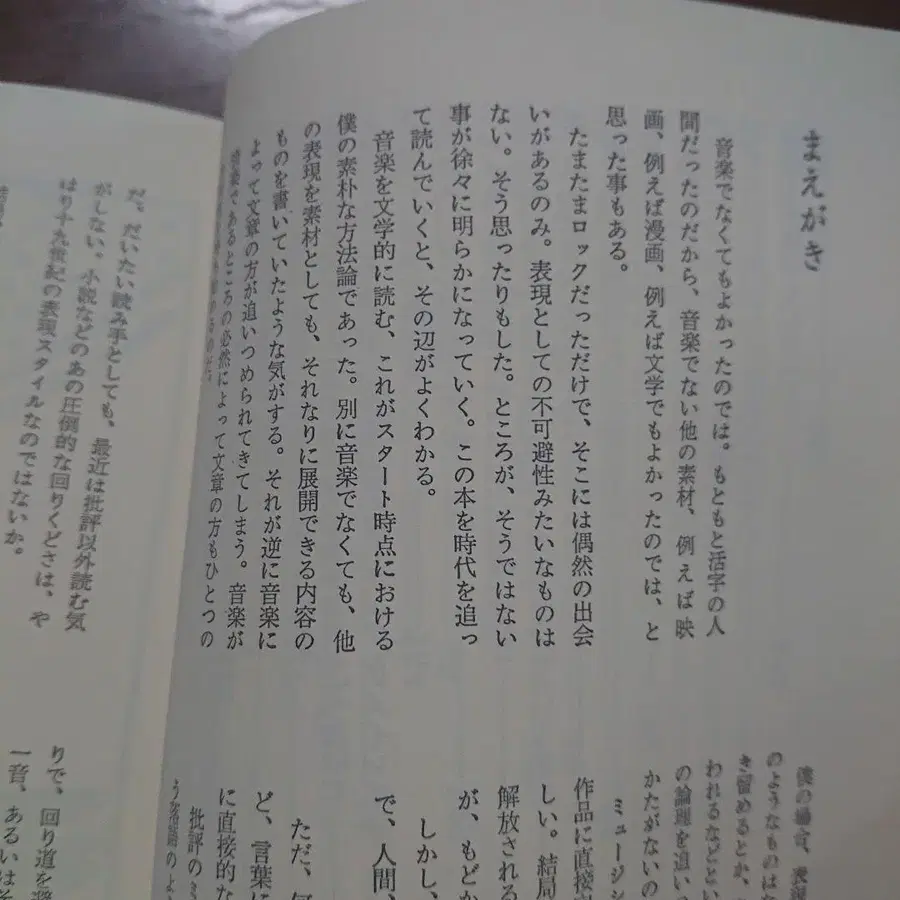 まえがき
音楽でなくてもよかったのでは。もともと活字の人
間だったのだから、音楽でない他の素材、例えば映
画、例えば漫画、例えば文学でもよかったのでは、と
思った事もある。
たまたまロックだっただけで、そこには偶然の出会
いがあるのみ。表現としての不可避性みたいなものは
ない。そう思ったりもした。ところが、そうではない
事が徐々に明らかになっていく。この本を時代を追っ
て読んでいくと、その辺がよくわかる。
音楽を文学的に読む、これがスタート時点における
僕の素朴な方法論であった。別に音楽でなくても、他
の表現を素材としても、それなりに展開できる内容の
ものを書いていたような気がする。それが逆に音楽に
よって文章の方が追いつめられてきてしまう。音楽が
音楽であるところの必然によって文章の方もひとつの
僕の場合、表現
のようなものはた
き留めるとか、
われるなどとい
の論理を追い
かたがないの
ミュージシ
作品に直接
しい。結局
解放される
が、もどか
しかし、
で、人間、
ただ、
ど、言葉に
に直接的な
批評の
だ。だいたい読み手としても、最近は批評以外読む気
がしない。小説などのあの圧倒的な回りくどさは、や
はり十九世紀の表現スタイルなのではないか。
りで、回り道を
一音、あるいは